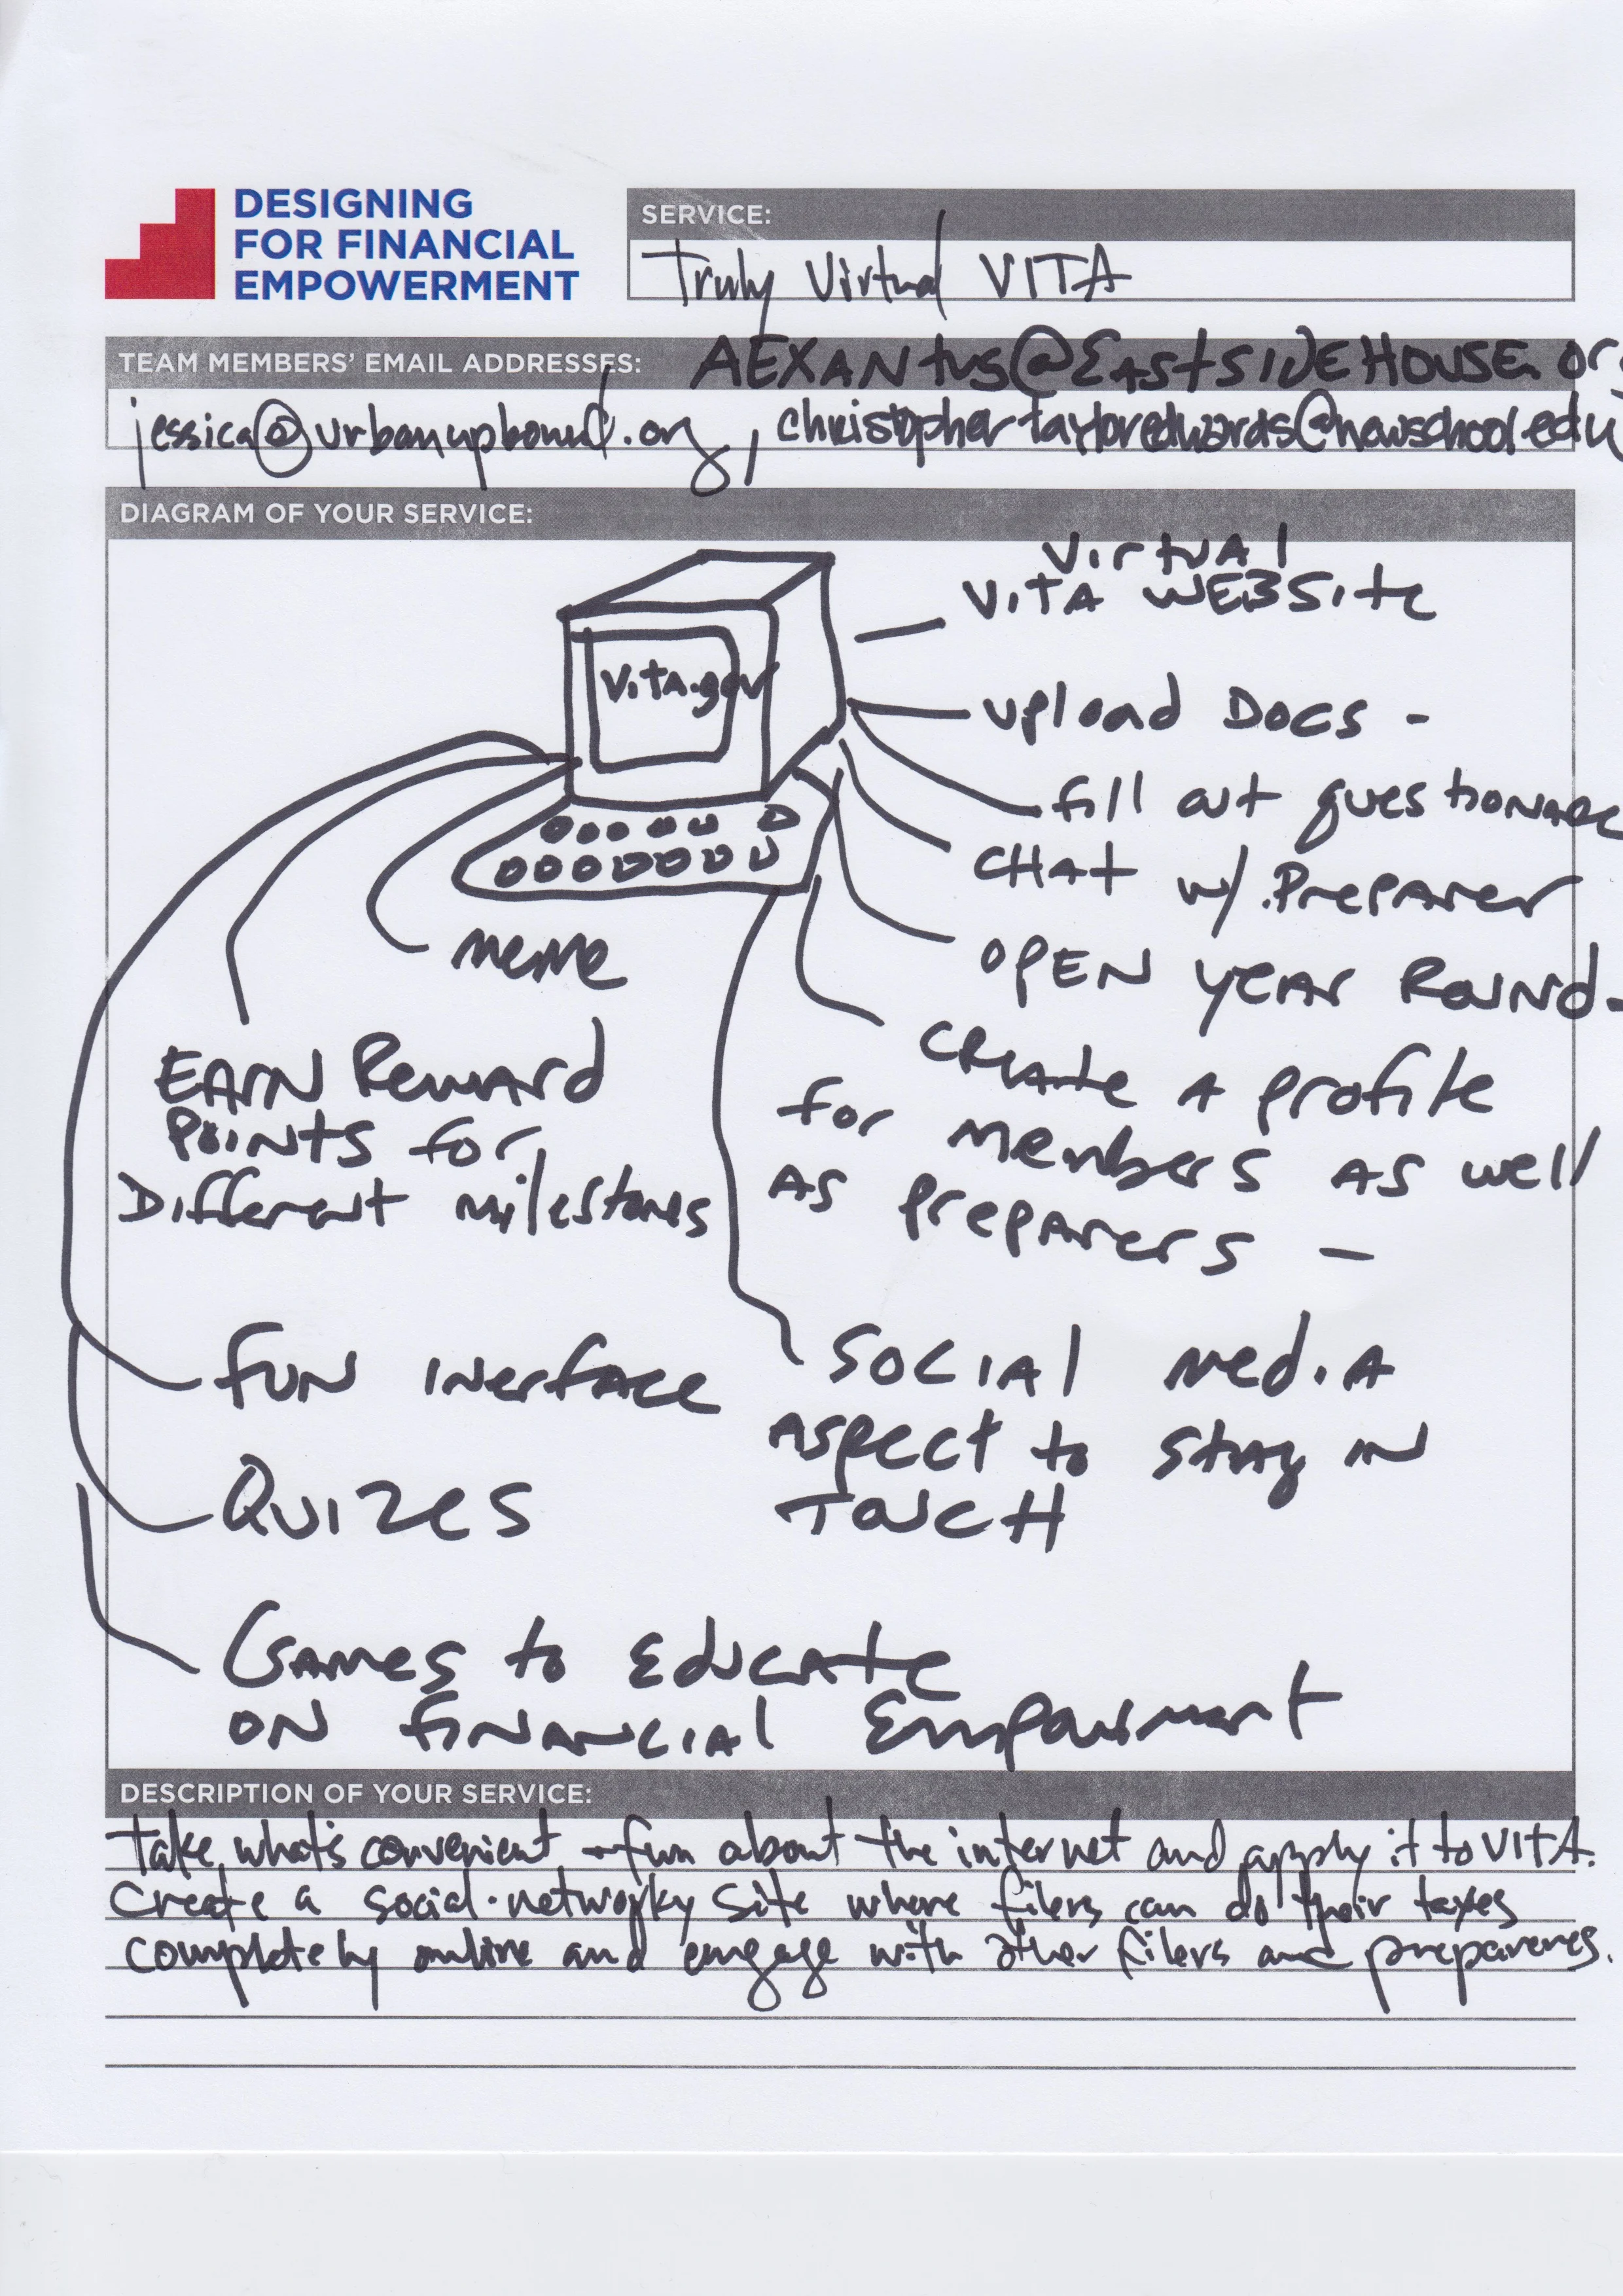 DESIGNING
FOR FINANCIAL
EMPOWERMENT
SERVICE:
Truly Virtual VITA
TEAM MEMBERS' EMAIL ADDRESSES:
AEXANtus@EAstsiDEHOUSE.org
jessica@urbanupbound.org, christophertayloredwards@newschool.edu
DIAGRAM OF YOUR SERVICE:
VirtuAl
ViTA WEBSite
ViTA.gov
Upload Docs -
fill out questionaire
CHAt w/ Preparer
OPEN YEAR Round -
meme
CREAte A profile
for members AS well
AS preparers -
EARN Reward
Points for
Different milestones
Fun inerface
Social mediA
Aspect to stay in
TOUCH
Quizes
Games to Educate
ON financial Empowerment
DESCRIPTION OF YOUR SERVICE:
Take what's convenient + fun about the internet and apply it to VITA.
Create a social-networky site where filers can do their taxes
completely online and engage with other filers and preparerers.